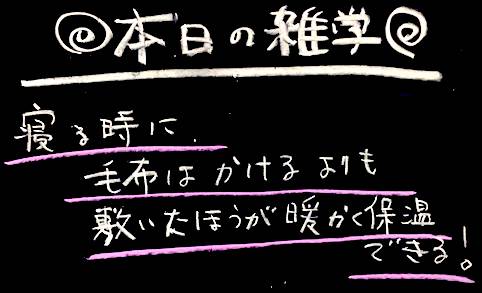 本日の雑学
寝る時に、
毛布はかけるよりも
敷いたほうが暖かく保温
できる!